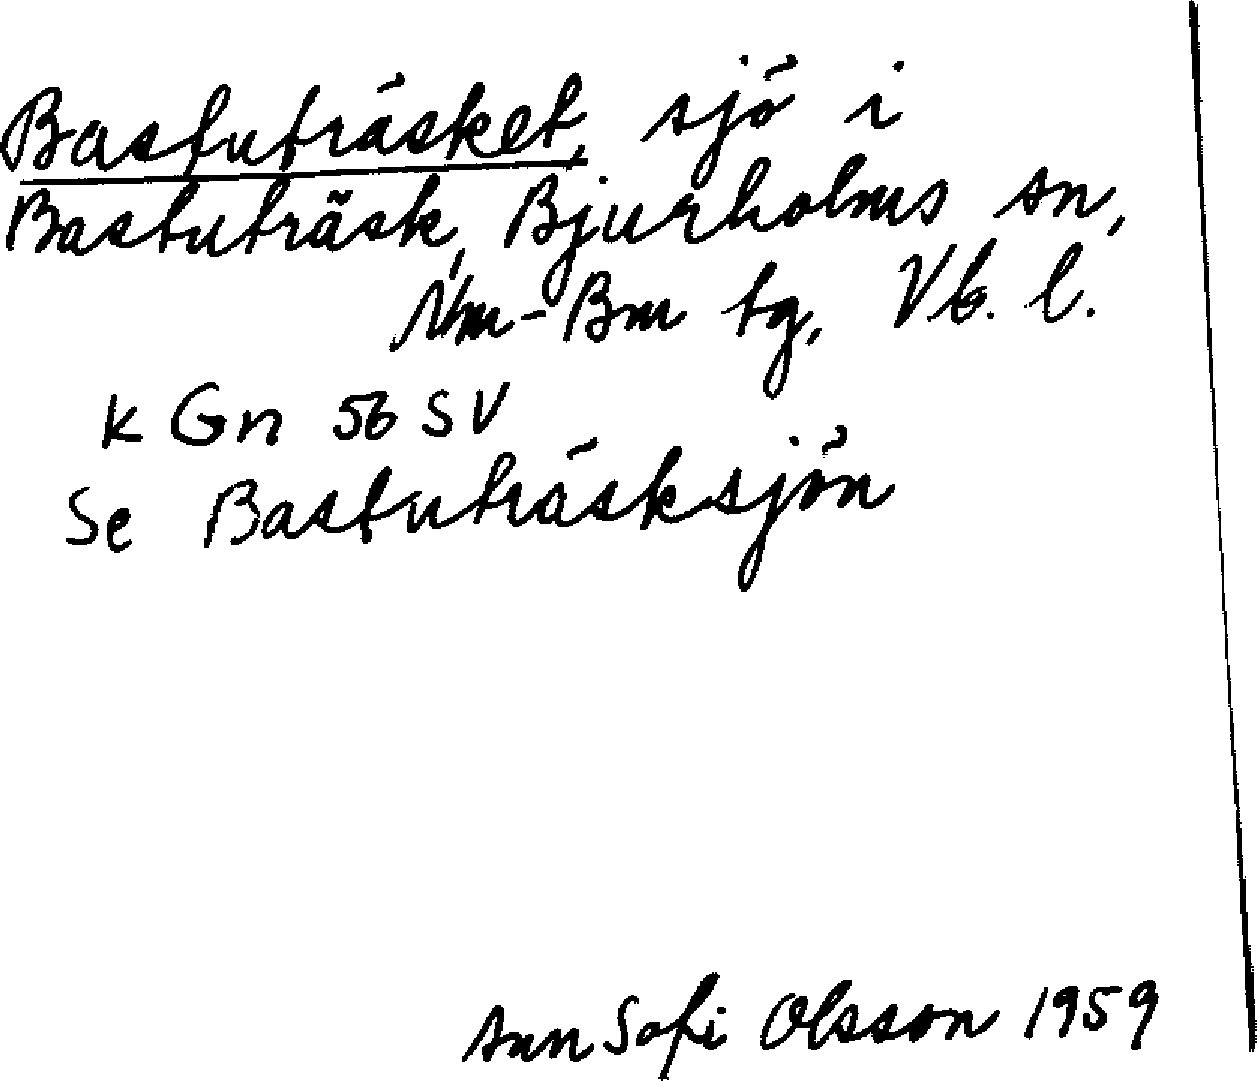 Bastuträsket, sjö i
Bastuträsk, Bjurholms sn,
Nm-Bm tg, Vb. l.
k Gn 56 SV
Se Bastuträsksjön
Ann Sofi Olsson 1959